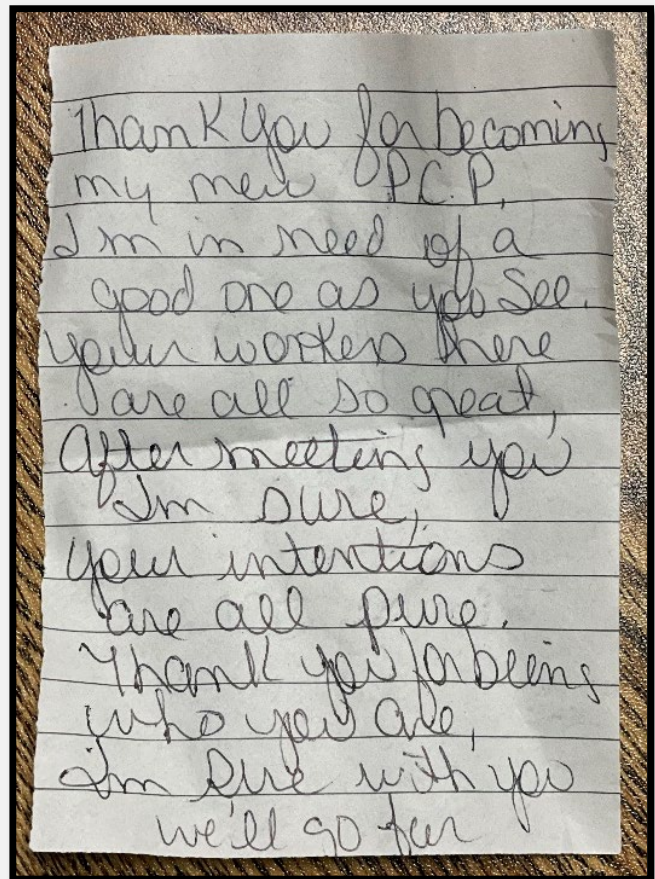 Thank you for becoming
my new P.C.P,
I'm in need of a
good one as you see.
your workers there
are all so great,
After meeting you
I'm sure,
your intentions
are all pure.
Thank you for being
who you are,
I'm sure with you
we'll go far